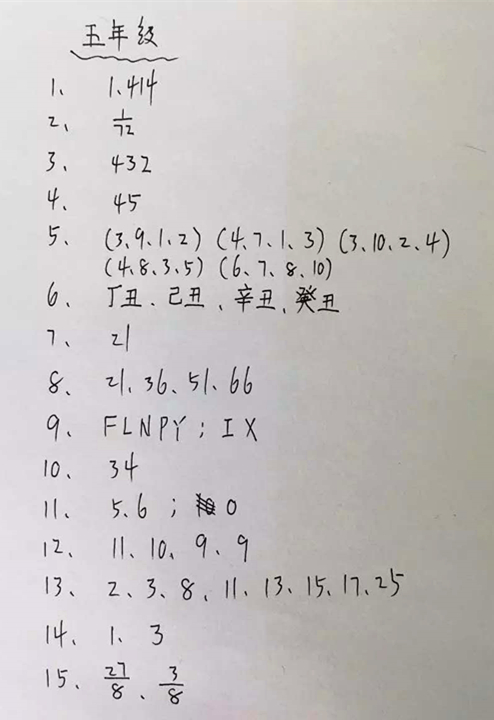 五年级
1、 1.414
2、 1/72
3、 432
4、 45
5、 (3、9、1、2) (4、7、1、3) (3、10、2、4)
(4、8、3、5) (6、7、8、10)
6、 丁丑、己丑、辛丑、癸丑
7、 21
8、 21、36、51、66
9、 FLNPY；IX
10、 34
11、 5.6；0
12、 11、10、9、9
13、 2、3、8、11、13、15、17、25
14、 1、3
15、 27/8、3/8